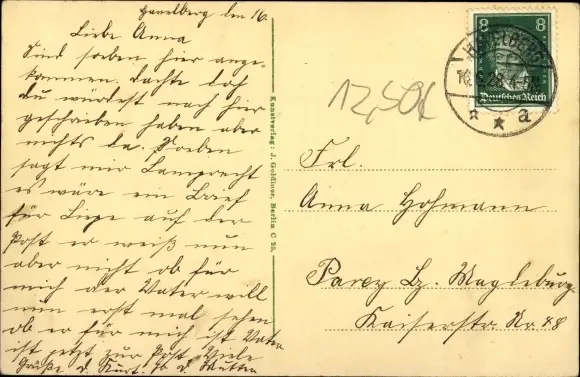 Havelberg den 16.
Liebe Anna
Sind soeben hier ange-
kommen. Dachte doch
Du würdest nach hier
geschrieben haben aber
nichts da. Soeben
sagt mir Lamprecht
es wäre ein Brief
für Liepe auf der
Post er weiß nun
aber nicht ob für
mich der Vater will
nun erst mal sehen
ob er für mich ist Vater
ist jetzt zur Post. Viele
Grüße d. Kurt. u. d. Mutter
Kunstverlag: J. Goldiner, Berlin C 25.
12,50€
8 8
Deutsches Reich
HAVELBERG
* a
Frl.
Anna Hohmann
Parey Bz. Magdeburg
Kaiserstr Nr. 48